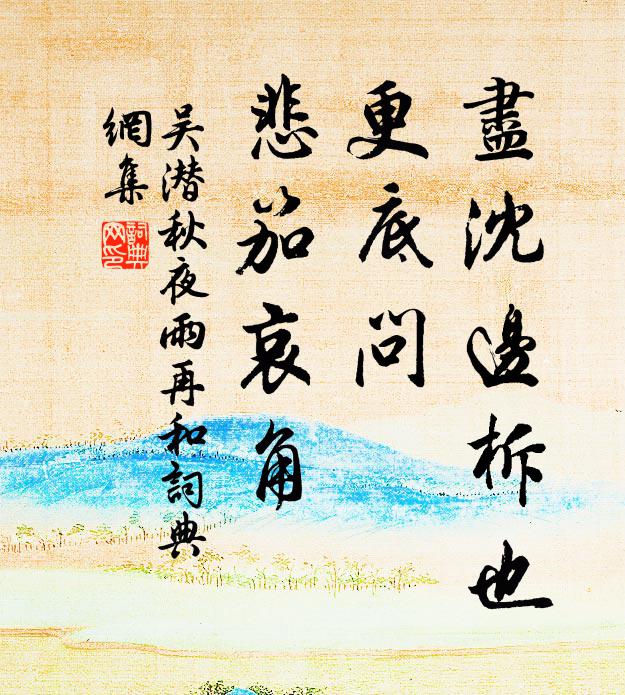 盡沈邊柝也
更底問
悲笳哀角
吴潛秋夜雨再和詞典
網集
詞典
网印